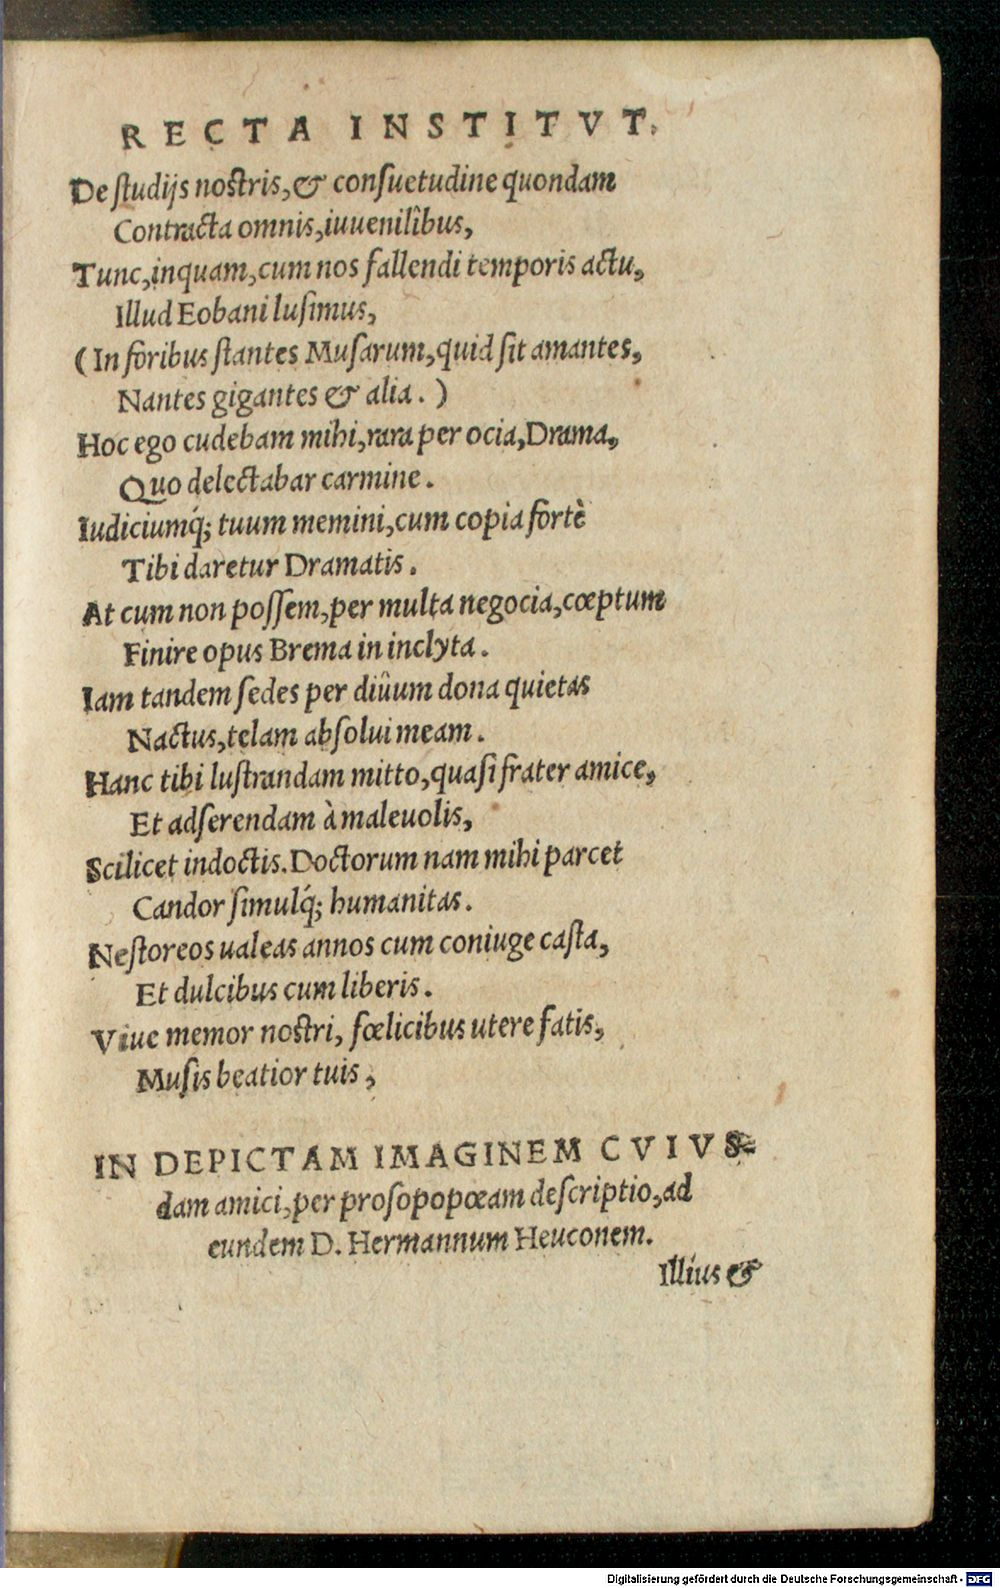 RECTA INSTITVT.
De studijs nostris, & consuetudine quondam
Contracta omnis, iuuenilibus,
Tunc, inquam, cum nos fallendi temporis actu,
Illud Eobani lusimus,
(In foribus stantes Musarum, quid sit amantes,
Nantes gigantes & alia.)
Hoc ego cudebam mihi, rara per ocia, Drama,
Quo delectabar carmine.
Iudiciumq́; tuum memini, cum copia fortè
Tibi daretur Dramatis.
At cum non possem, per multa negocia, cœptum
Finire opus Brema in inclyta.
Iam tandem sedes per diûum dona quietas
Nactus, telam absolui meam.
Hanc tibi lustrandam mitto, quasi frater amice,
Et adserendam à maleuolis,
Scilicet indoctis. Doctorum nam mihi parcet
Candor simulq́; humanitas.
Nestoreos ualeas annos cum coniuge casta,
Et dulcibus cum liberis.
Viue memor nostri, fœlicibus utere fatis,
Musis beatior tuis,
IN DEPICTAM IMAGINEM CVIVS-
dam amici, per prosopopœam descriptio, ad
eundem D. Hermannum Heuconem.
Illius &
Digitalisierung gefördert durch die Deutsche Forschungsgemeinschaft - DFG